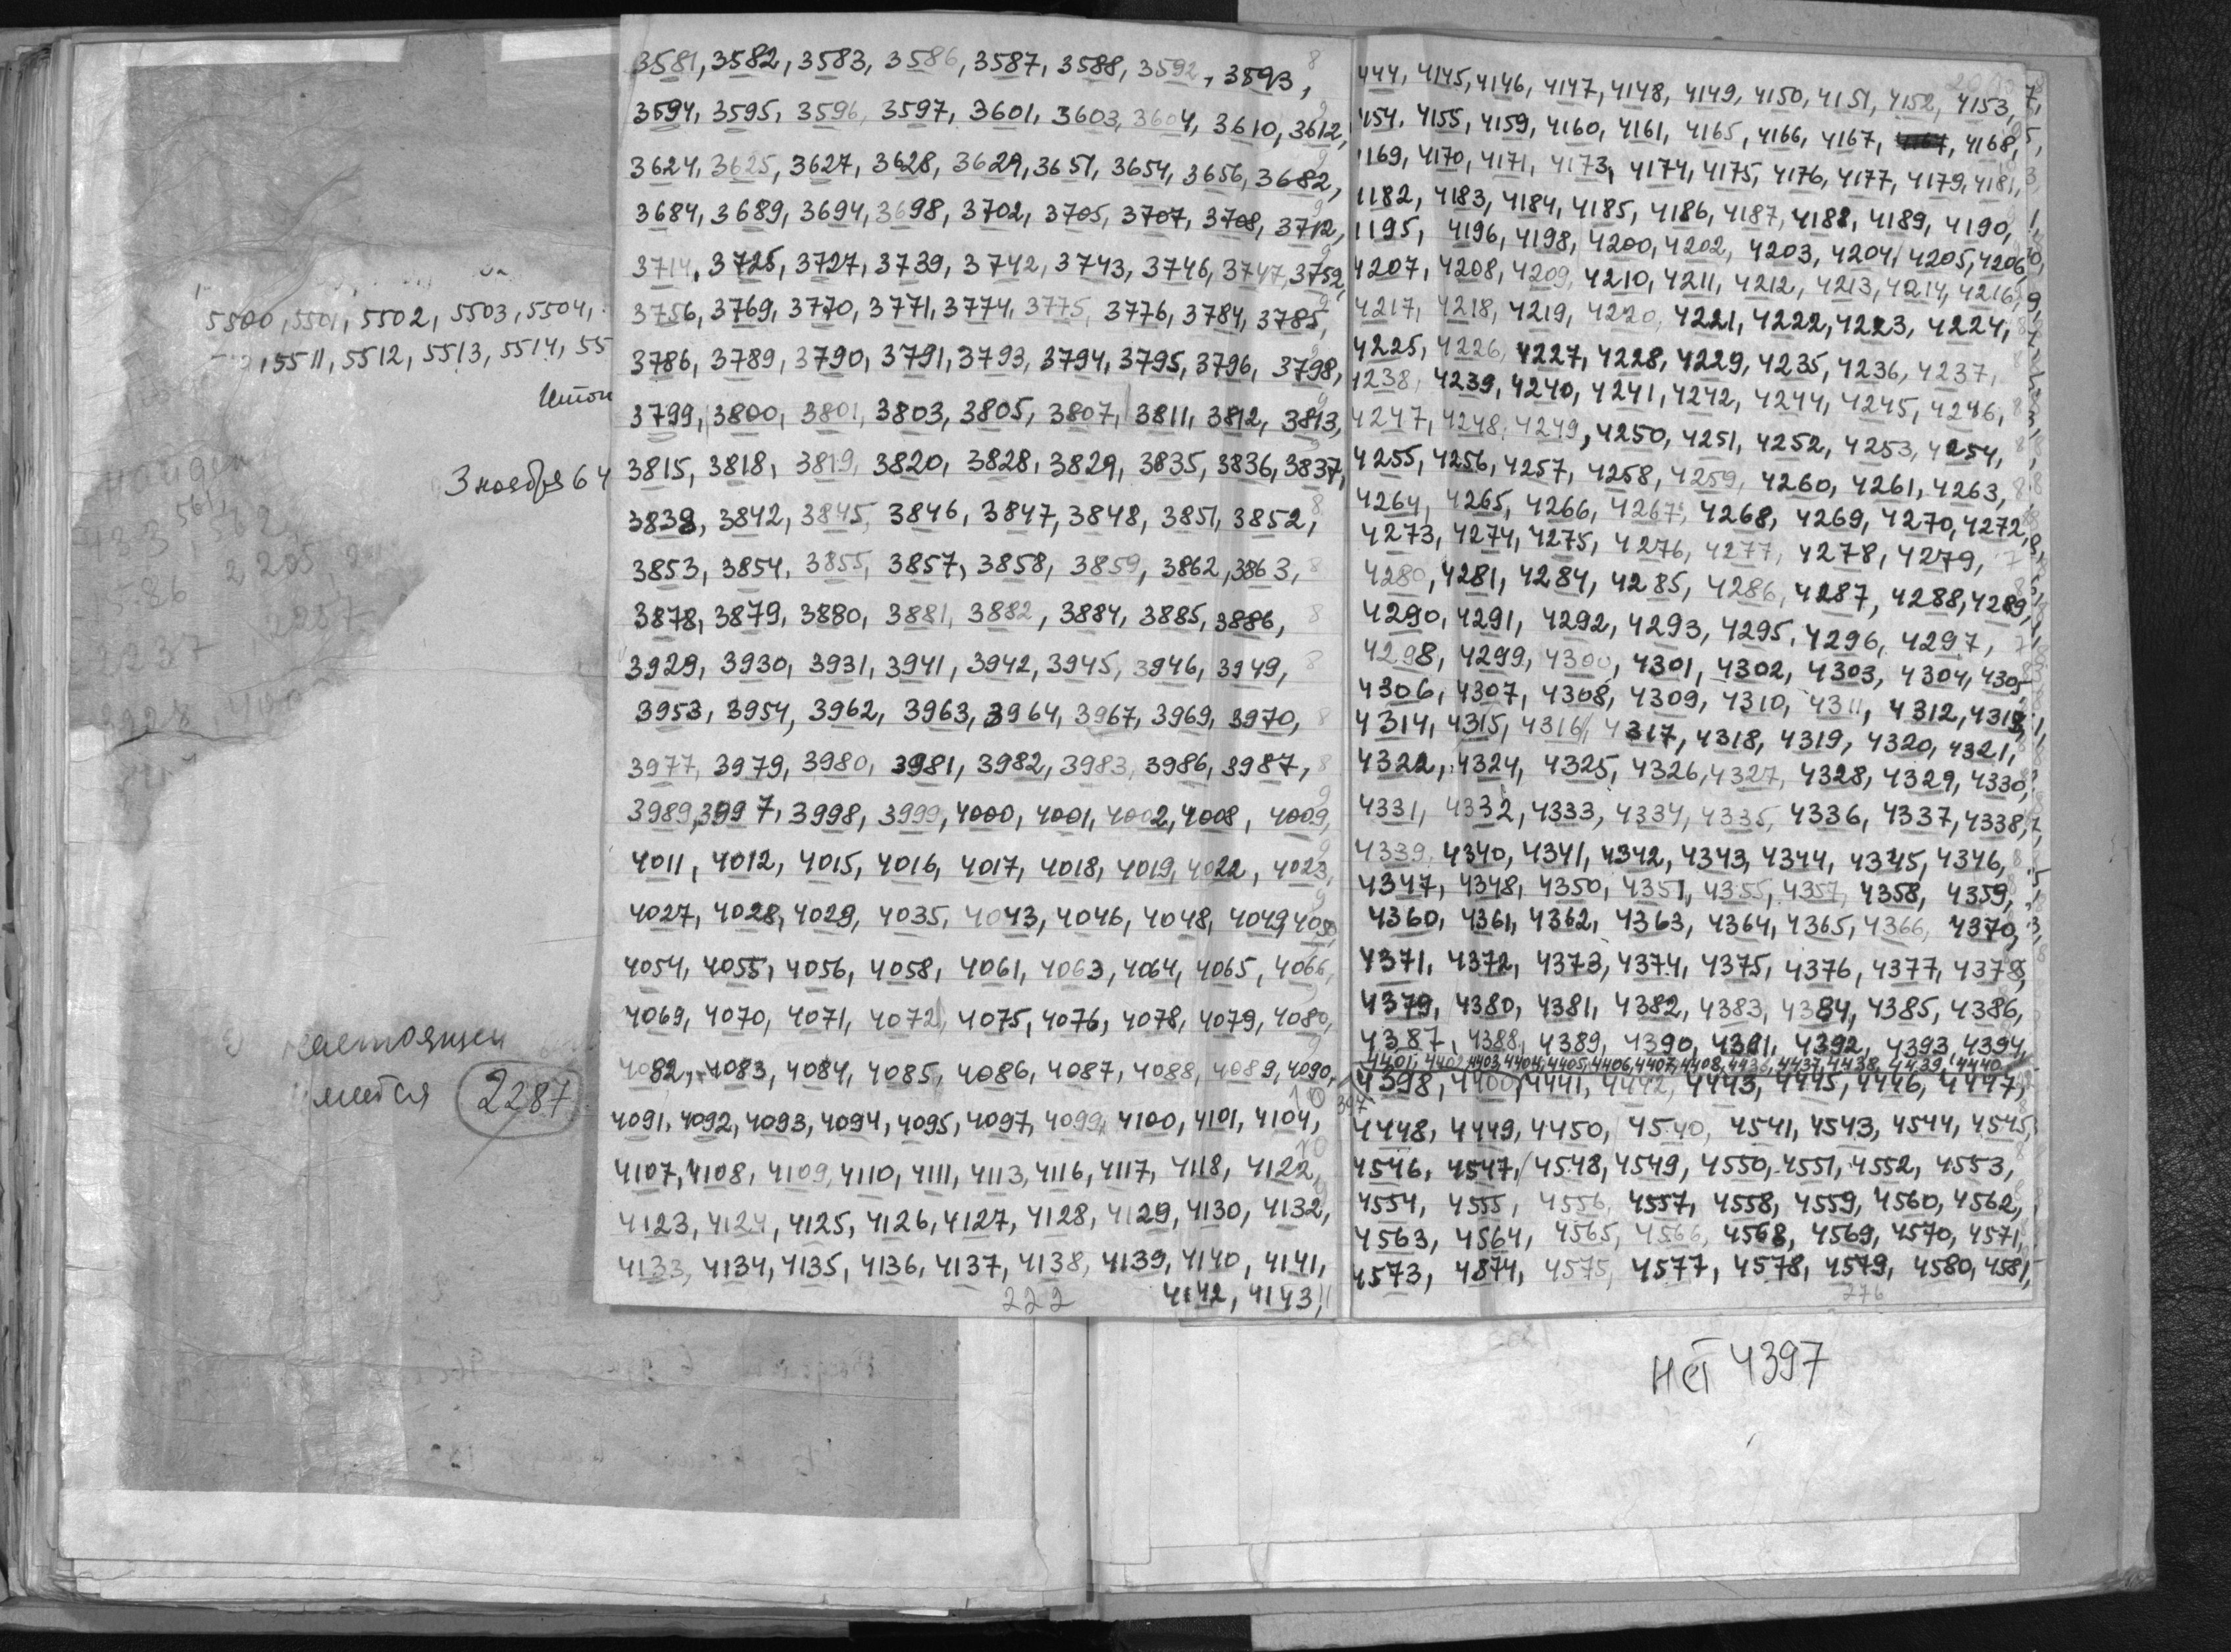 5500, 5501, 5502, 5503, 5504,
5511, 5512, 5513, 5514, 55
3 ноября 64
2205, 2
2237 2257
имеется 2287
3581, 3582, 3583, 3586, 3587, 3588, 3592, 3593, 8
3594, 3595, 3596, 3597, 3601, 3603, 3604, 3610, 3612, 9
3624, 3625, 3627, 3628, 3629, 3651, 3654, 3656, 3682, 9
3684, 3689, 3694, 3698, 3702, 3705, 3707, 3708, 3712, 9
3714, 3725, 3727, 3739, 3742, 3743, 3746, 3747, 3752, 9
3756, 3769, 3770, 3771, 3774, 3775, 3776, 3784, 3785, 9
3786, 3789, 3790, 3791, 3793, 3794, 3795, 3796, 3798, 9
3799, 3800, 3801, 3803, 3805, 3807, 3811, 3812, 3813, 9
3815, 3818, 3819, 3820, 3828, 3829, 3835, 3836, 3837, 9
3838, 3842, 3845, 3846, 3847, 3848, 3851, 3852, 8
3853, 3854, 3855, 3857, 3858, 3859, 3862, 3863, 8
3878, 3879, 3880, 3881, 3882, 3884, 3885, 3886, 8
3929, 3930, 3931, 3941, 3942, 3945, 3946, 3949, 8
3953, 3954, 3962, 3963, 3964, 3967, 3969, 3970, 8
3977, 3979, 3980, 3981, 3982, 3983, 3986, 3987, 8
3989, 3997, 3998, 3999, 4000, 4001, 4002, 4008, 4009, 9
4011, 4012, 4015, 4016, 4017, 4018, 4019, 4022, 4023, 9
4027, 4028, 4029, 4035, 4043, 4046, 4048, 4049, 4050, 9
4054, 4055, 4056, 4058, 4061, 4063, 4064, 4065, 4066,
4069, 4070, 4071, 4072, 4075, 4076, 4078, 4079, 4080, 9
4082, 4083, 4084, 4085, 4086, 4087, 4088, 4089, 4090, 9
4091, 4092, 4093, 4094, 4095, 4097, 4099, 4100, 4101, 4104, 10
4107, 4108, 4109, 4110, 4111, 4113, 4116, 4117, 4118, 4122, 10
4123, 4124, 4125, 4126, 4127, 4128, 4129, 4130, 4132,
4133, 4134, 4135, 4136, 4137, 4138, 4139, 4140, 4141,
222 4142, 4143, 11
444, 4145, 4146, 4147, 4148, 4149, 4150, 4151, 4152, 4153,
154, 4155, 4159, 4160, 4161, 4165, 4166, 4167, 4168,
169, 4170, 4171, 4173, 4174, 4175, 4176, 4177, 4179, 4181,
1182, 4183, 4184, 4185, 4186, 4187, 4188, 4189, 4190,
1195, 4196, 4198, 4200, 4202, 4203, 4204, 4205, 4206,
4207, 4208, 4209, 4210, 4211, 4212, 4213, 4214, 4216,
4217, 4218, 4219, 4220, 4221, 4222, 4223, 4224, 8
4225, 4226, 4227, 4228, 4229, 4235, 4236, 4237, 8
4238, 4239, 4240, 4241, 4242, 4244, 4245, 4246, 8
4247, 4248, 4249, 4250, 4251, 4252, 4253, 4254, 8
4255, 4256, 4257, 4258, 4259, 4260, 4261, 4263, 8
4264, 4265, 4266, 4267, 4268, 4269, 4270, 4272,
4273, 4274, 4275, 4276, 4277, 4278, 4279, 7
4280, 4281, 4284, 4285, 4286, 4287, 4288, 4289,
4290, 4291, 4292, 4293, 4295, 4296, 4297, 7
4298, 4299, 4300, 4301, 4302, 4303, 4304, 4305,
4306, 4307, 4308, 4309, 4310, 4311, 4312, 4313,
4314, 4315, 4316, 4317, 4318, 4319, 4320, 4321,
4322, 4324, 4325, 4326, 4327, 4328, 4329, 4330,
4331, 4332, 4333, 4334, 4335, 4336, 4337, 4338,
4339, 4340, 4341, 4342, 4343, 4344, 4345, 4346, 8
4347, 4348, 4350, 4351, 4355, 4357, 4358, 4359,
4360, 4361, 4362, 4363, 4364, 4365, 4366, 4370,
4371, 4372, 4373, 4374, 4375, 4376, 4377, 4378,
4379, 4380, 4381, 4382, 4383, 4384, 4385, 4386,
4387, 4388, 4389, 4390, 4391, 4392, 4393, 4394,
4401, 4402, 4403, 4404, 4405, 4406, 4407, 4408, 4436, 4437, 4438, 4439, 4440
4398, 4400, 4441, 4442, 4443, 4445, 4446, 4447,
4448, 4449, 4450, 4540, 4541, 4543, 4544, 4545,
4546, 4547, 4548, 4549, 4550, 4551, 4552, 4553,
4554, 4555, 4556, 4557, 4558, 4559, 4560, 4562,
4563, 4564, 4565, 4566, 4568, 4569, 4570, 4571,
4573, 4574, 4575, 4577, 4578, 4579, 4580, 4581,
276
Нет 4397